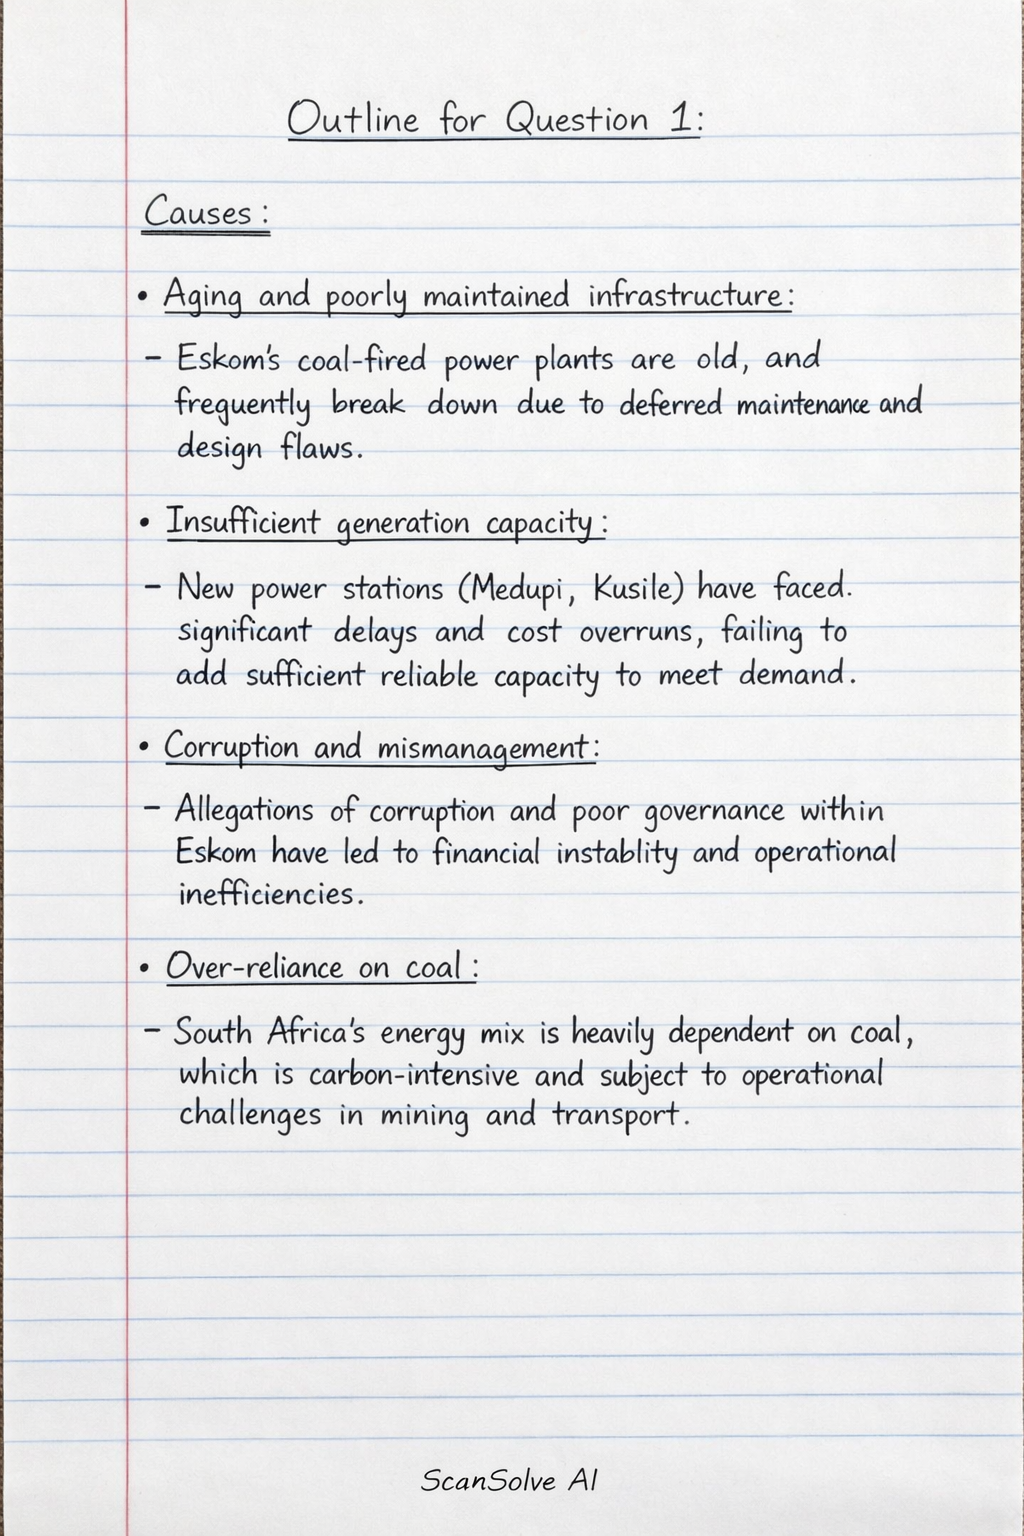 Outline for Question 1:
Causes:
• Aging and poorly maintained infrastructure:
– Eskom's coal-fired power plants are old, and
frequently break down due to deferred maintenance and
design flaws.
• Insufficient generation capacity:
– New power stations (Medupi, Kusile) have faced.
significant delays and cost overruns, failing to
add sufficient reliable capacity to meet demand.
• Corruption and mismanagement:
– Allegations of corruption and poor governance within
Eskom have led to financial instablity and operational
inefficiencies.
• Over-reliance on coal:
– South Africa's energy mix is heavily dependent on coal,
which is carbon-intensive and subject to operational
challenges in mining and transport.
ScanSolve AI